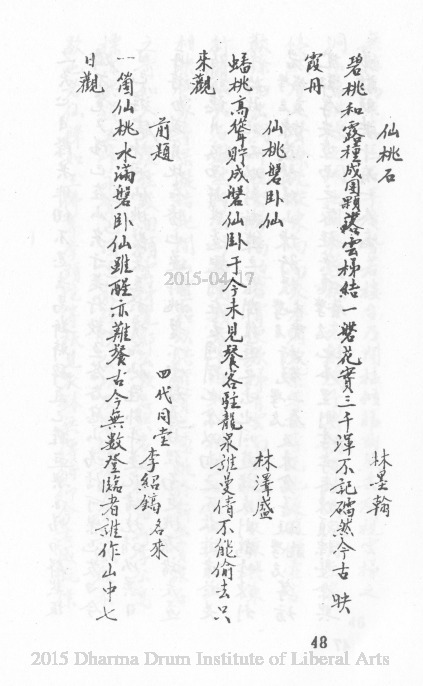 仙桃石
林墨翰
碧桃和露種成團顆落雲梯結一磐花實三千渾不記磊然今古映
霞丹
仙桃磐臥仙
林澤盛
蟠桃高聳貯成磐仙臥于今未見餐容駐龍泉誰曼倩不能偷去只
來觀
前題
四代同堂李紹鎬名來
一箇仙桃水滿磐臥仙雖醒亦難餐古今無數登臨者誰作山中七
日觀
48
2015-04-17
2015 Dharma Drum Institute of Liberal Arts